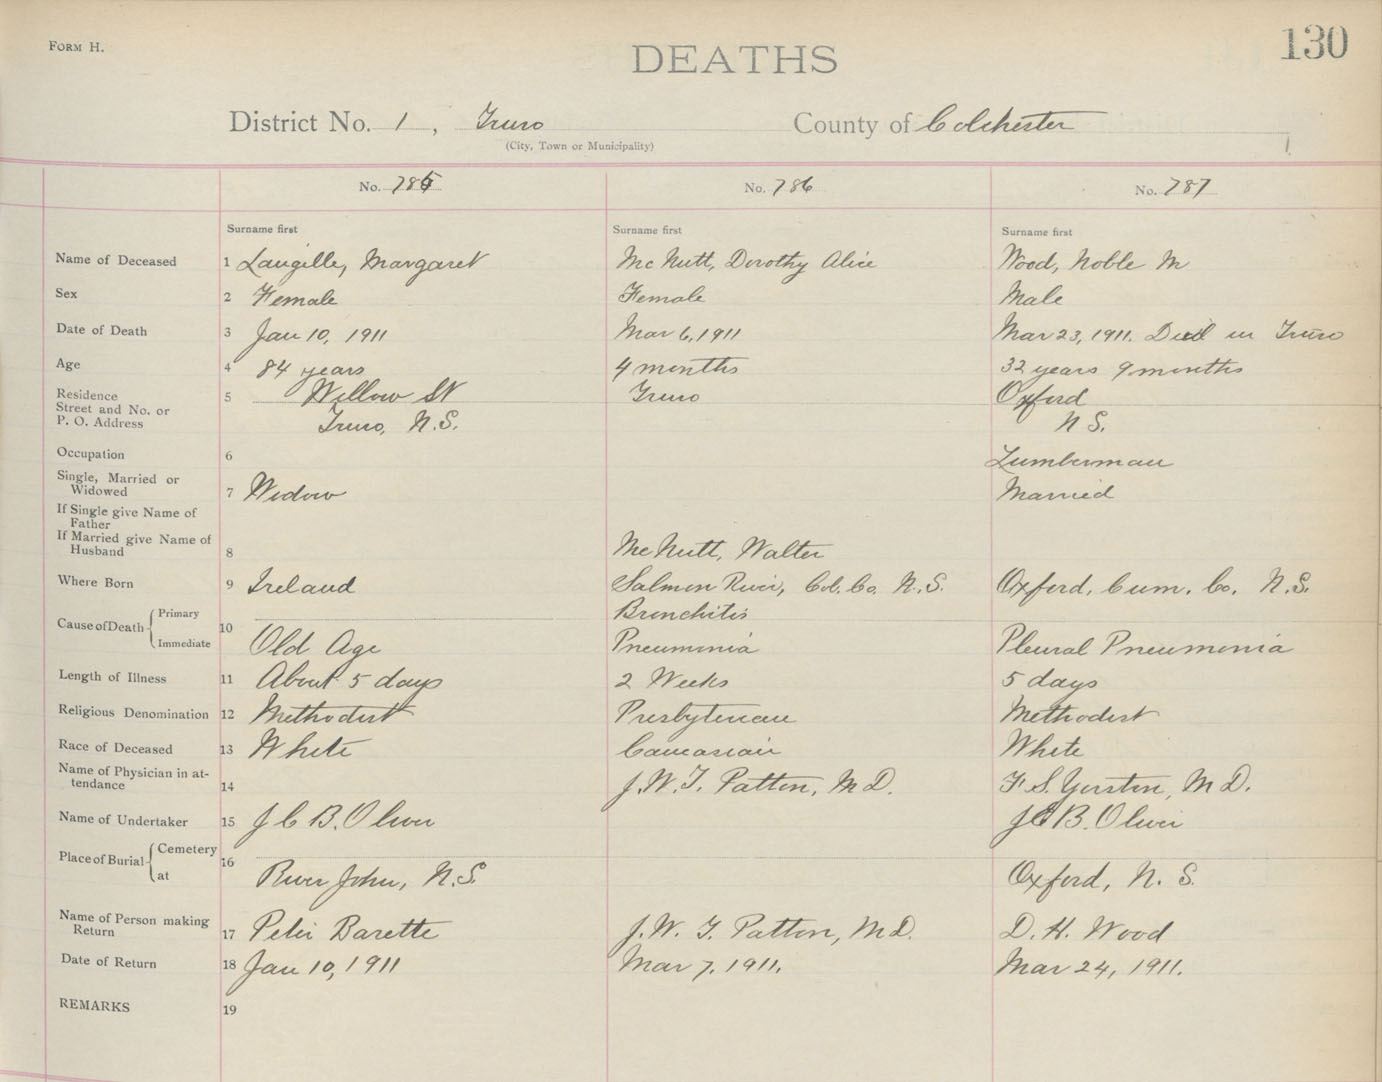 FORM H.
130
DEATHS
District No. 1, Truro County of Colchester
(City, Town or Municipality)
No. 785 No. 786 No. 787
Surname first Surname first Surname first
Name of Deceased 1 Langille, Margaret McNutt, Dorothy Alice Wood, Noble M
Sex 2 Female Female Male
Date of Death 3 Jan 10, 1911 Mar 6, 1911 Mar 23, 1911. Died in Truro
Age 4 84 years 4 months 32 years 9 months
Residence 5 Willow St Truro Oxford
Street and No. or
P. O. Address Truro, N.S. N S.
Occupation 6 Lumberman
Single, Married or
Widowed 7 Widow Married
If Single give Name of
Father
If Married give Name of
Husband 8 McNutt, Walter
Where Born 9 Ireland Salmon River, Col. Co. N.S. Oxford, Cum. Co. N.S.
Cause of Death Primary 10 Bronchitis
Immediate Old Age Pneumonia Pleural Pneumonia
Length of Illness 11 About 5 days 2 Weeks 5 days
Religious Denomination 12 Methodist Presbyterian Methodist
Race of Deceased 13 White Caucasian White
Name of Physician in at-
tendance 14 J. W. T. Patton, M D. F. S. M D.
Name of Undertaker 15 J C B. Oliver J C B. Oliver
Place of Burial Cemetery 16
at River John, N.S. Oxford, N. S.
Name of Person making
Return 17 Peter Barette J. W. T. Patton, M D. D. H. Wood
Date of Return 18 Jan 10, 1911 Mar 7, 1911. Mar 24, 1911.
REMARKS 19